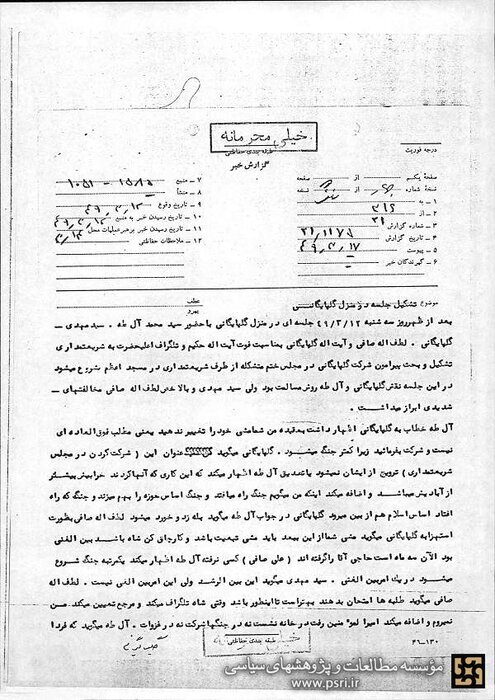 خیلی محرمانه
طبقه بندی حفاظتی
گزارش خبر
درجه فوریت
صفحه یکم از صفحه
نسخه شماره از نسخه
۱ - به ۳۱۶
۲ - از ۲۱
۳ - شماره گزارش ۲۱/۱۱۷۵
۴ - تاریخ گزارش ۴۹/۳/۱۷
۵ - پیوست
۶ - گیرندگان خبر
۷ - منبع
۸ - منشأ
۹ - تاریخ وقوع ۴۹/۳/۱۲
۱۰ - تاریخ رسیدن خبر به منبع ۴۹/۳/۱۲
۱۱ - تاریخ رسیدن خبر به رهبر عملیات محل
۱۲ - ملاحظات حفاظتی
موضوع تشکیل جلسه در منزل گلپایگانی
عطف
پیرو
بعد از ظهر روز سه شنبه ۴۹/۳/۱۲ جلسه ای در منزل گلپایگانی با حضور سید محمد آل طه . سید مهدی -
گلپایگانی . لطف اله صافی و آیت اله گلپایگانی بمناسبت فوت آیت اله حکیم و تلگراف اعلیحضرت به شریعتمداری
تشکیل و بحث پیرامون شرکت گلپایگانی در مجلس ختم متشکله از طرف شریعتمداری در مسجد اعظم شروع میشود
در این جلسه نقش گلپایگانی و آل طه روش مسالمت بود ولی سید مهدی و بالاخص لطف اله صافی مخالفتهای -
شدیدی ابراز میداشت .
آل طه خطاب به گلپایگانی اظهار داشت بعقیده من شما مشی خود را تغییر ندهید یعنی مطلب فوق العاده ای
نیست و شرکت بفرمائید زیرا کمتر جنگ میشود . گلپایگانی میگوید عنوان این ( شرکت کردن در مجلس
شریعتمداری ) ترویج از ایشان نمیشود با تصدیق آل طه اظهار میکند که این کاری که آنها کردند خرابیش بیشتر
از آبادیش میباشد و اضافه میکند اینکه من میگویم جنگ راه میافتد و جنگ اساس حوزه را بهم میزند و جنگ که راه
افتاد اساس اسلام هم از بین میرود گلپایگانی در جواب آل طه میگوید بله زد و خورد میشود لطف اله صافی بصورت
استهزا به گلپایگانی میگوید مشی شما از این ببعد باید مشی تبعیت باشد و کارجای کن شاه باشد بین الغنی
بود الان سه ماه است حاجی آقا را گرفته اند ( علی صافی ) کسی نرفته آل طه اظهار میکند یکمرتبه جنگ شروع
میشود در یک امر بین الغنی . سید مهدی میگوید این بین الرشد ولی این امر بین الغنی نیست . لطف اله
صافی میگوید طلبه ها امتحان بدهند بهتر است تا اینطور باشد وقتی شاه تلگراف میکند و مرجع تعیین میکند من
نمیروم و اضافه میکند امیرالمؤمنین رفت در خانه نشست نه در جنگها شرکت نه در غزوات . آل طه میگوید که فردا
۴۶-۱۳۰
طبقه بندی حفاظتی
خیلی محرمانه
مؤسسه مطالعات و پژوهشهای سیاسی
www.psri.ir